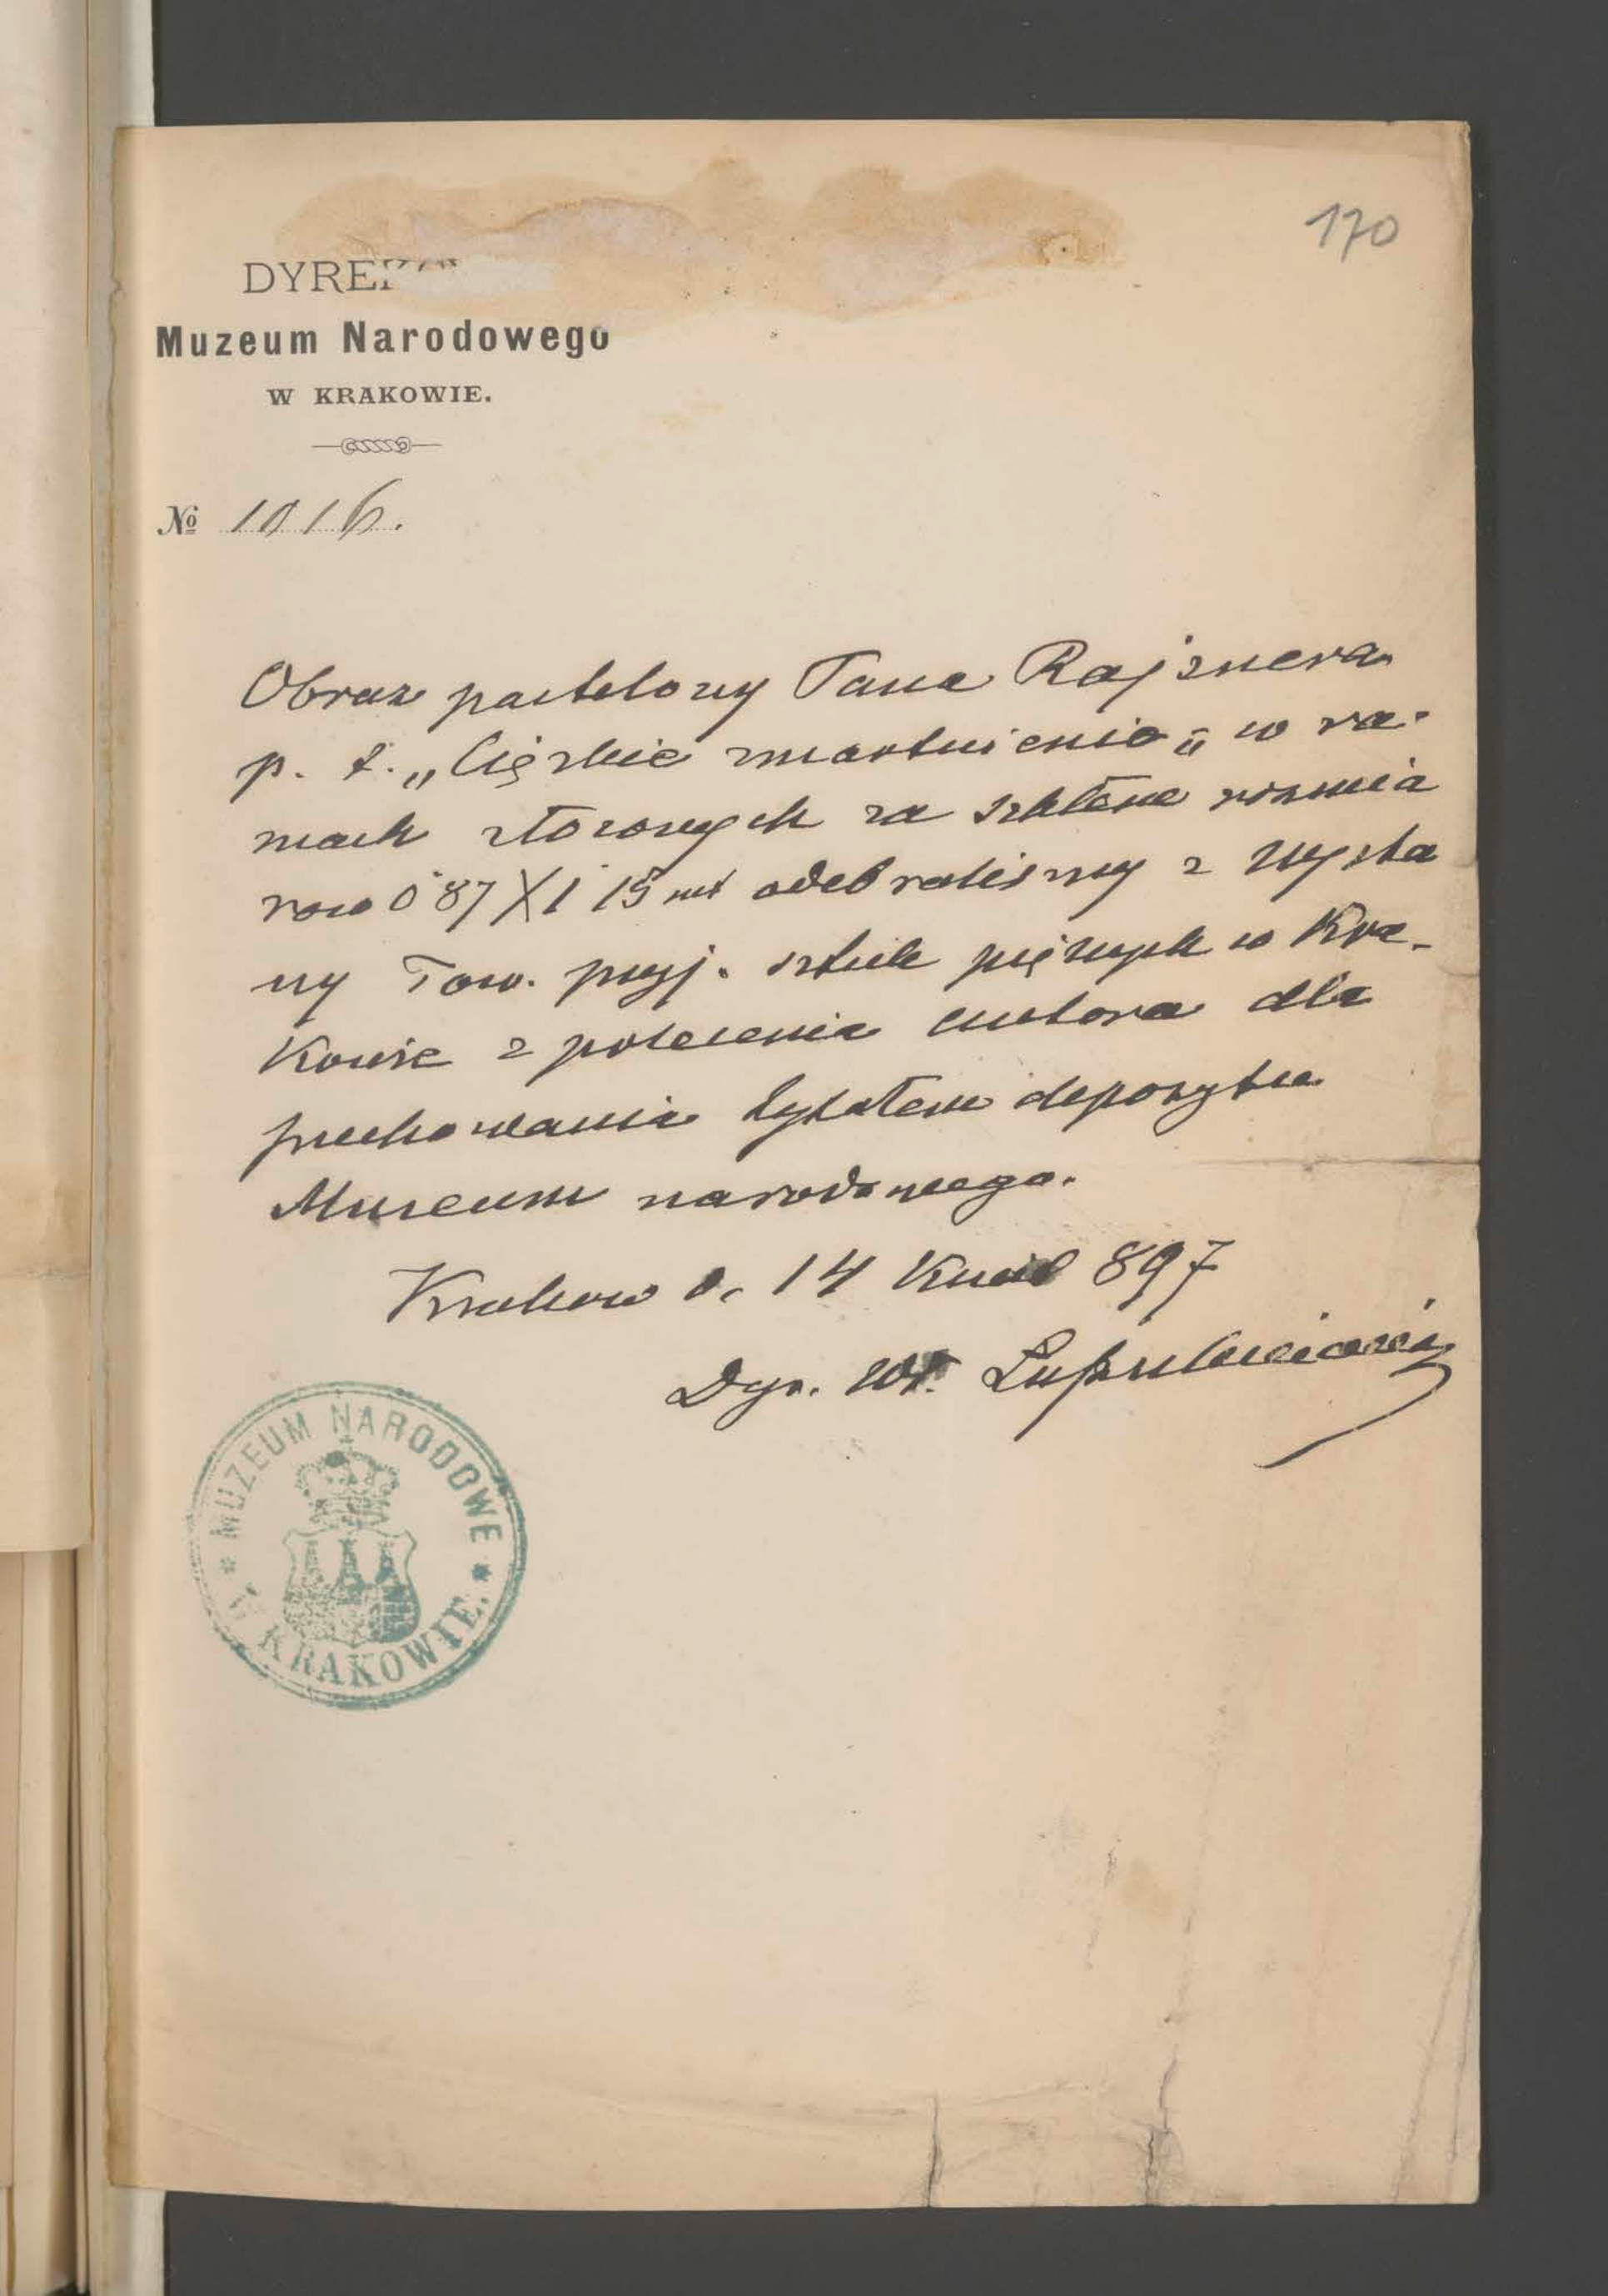 170
DYREK
Muzeum Narodowego
W KRAKOWIE.
№ 1016.
Obraz pastelowy Pana Rajznera
p. t. „Ciężkie zmartwienie„ w ra-
mach złoconych za szkłem rozmia
row 0˙87 X 1˙15 mt odebraliśmy z Wysta
wy Tow. przyj. sztuk pięknych w Kra-
kowie z polecenia autora dla
przechowania tytułem depozytu
Muzeum narodowego.
Krakow d. 14 Kwiet 897
Dyr. Wł. Łuszczkiewicz
MUZEUM NARODOWE
W KRAKOWIE.